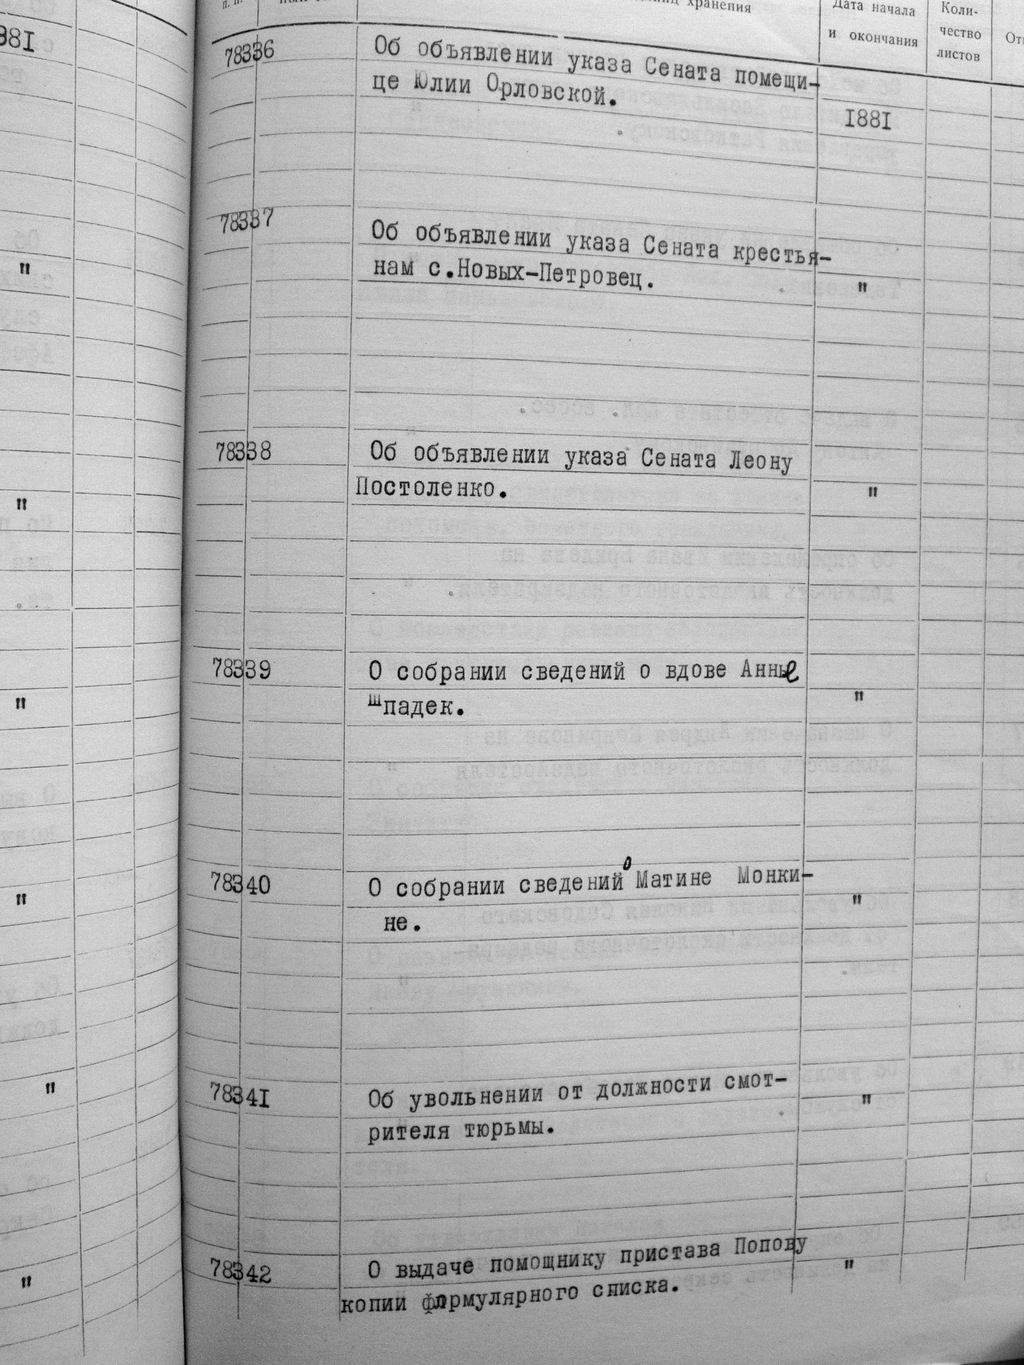 хранения
Дата начала
и окончания
Коли-
чество
листов
78336
Об объявлении указа Сената помещи-
це Юлии Орловской.
1881
78337
Об объявлении указа Сената крестья-
нам с.Новых-Петровец.
"
78338
Об объявлении указа Сената Леону
Постоленко.
"
78339
О собрании сведений о вдове Анне
Шпадек.
"
78340
О собрании сведений о Матине Монки-
не.
"
78341
Об увольнении от должности смот-
рителя тюрьмы.
"
78342
О выдаче помощнику пристава Попову
копии формулярного списка.
"